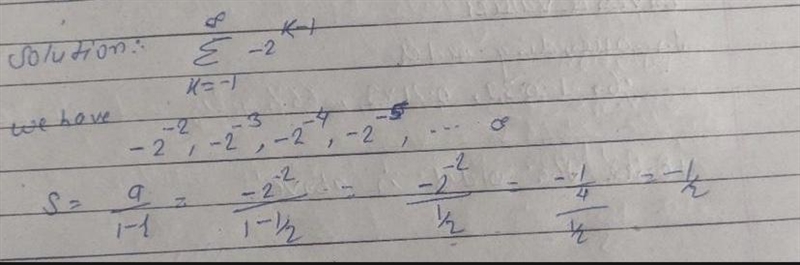 Solution:- ∞ Σ K=-1 -2^{K-1}
we have
-2^{-2}, -2^{-3}, -2^{-4}, -2^{-5}, ---- ∞
S = a/(1-1) = -2^{-2}/(1-1/2) = -2^{-2}/(1/2) = (-1/4)/(1/2) = -1/2